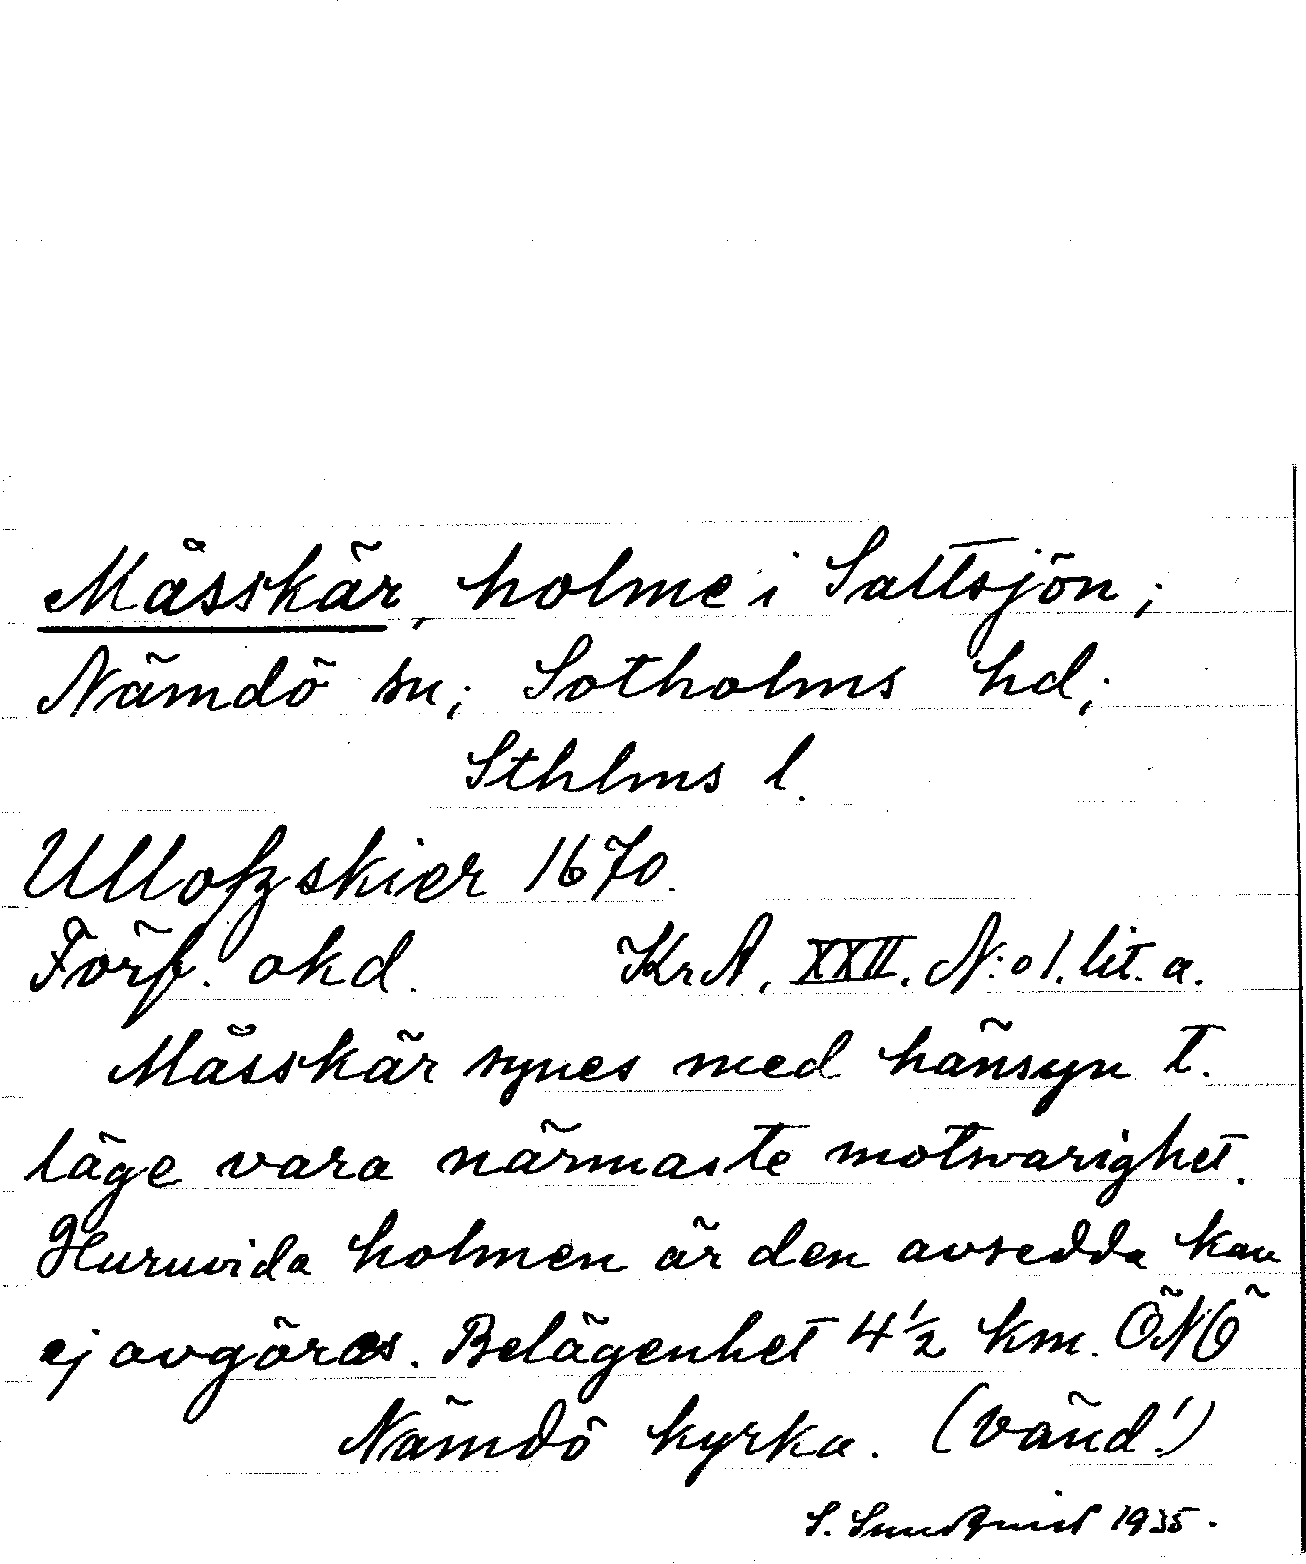 Måsskär, holme i Saltsjön;
Nämdö sn; Sotholms hd;
Sthlms l.
Ullofzskier 1670.
Förf. okd. KrA, XXII. N:o 1. lit. a.
Måsskär synes med hänsyn t.
läge vara närmaste motsvarighet.
Huruvida holmen är den avsedda kan
ej avgöras. Belägenhet 4 1/2 km. ÖNÖ
Nämdö kyrka. (vänd!)
S. Sundquist 1935.